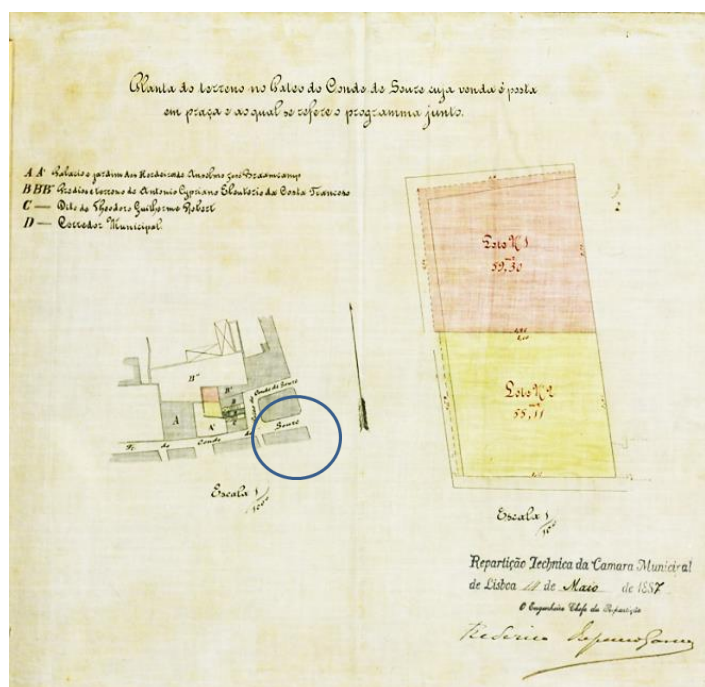 Planta do terreno no Pateo do Conde de Soure cuja venda é posta
em praça e ao qual se refere o programma junto.
A A' Palacio e jardim dos Herdeiros de Anselmo José Braamcamp
B B'B" Predios e terreno de Antonio Cypriano Eleuterio da Costa Trancoso
C — Dito de Theodoro Guilherme Robert
D — Corredor Municipal
Lote Nº 1
59,30
Lote Nº 2
55,11
B"
B'
B
A
A'
C
Conde de Soure
R. do Conde de Soure
Escala 1
Escala 1
Repartição Technica da Camara Municipal
de Lisboa de Maio de 1887
O Engenheiro Chefe da Repartição
Frederico